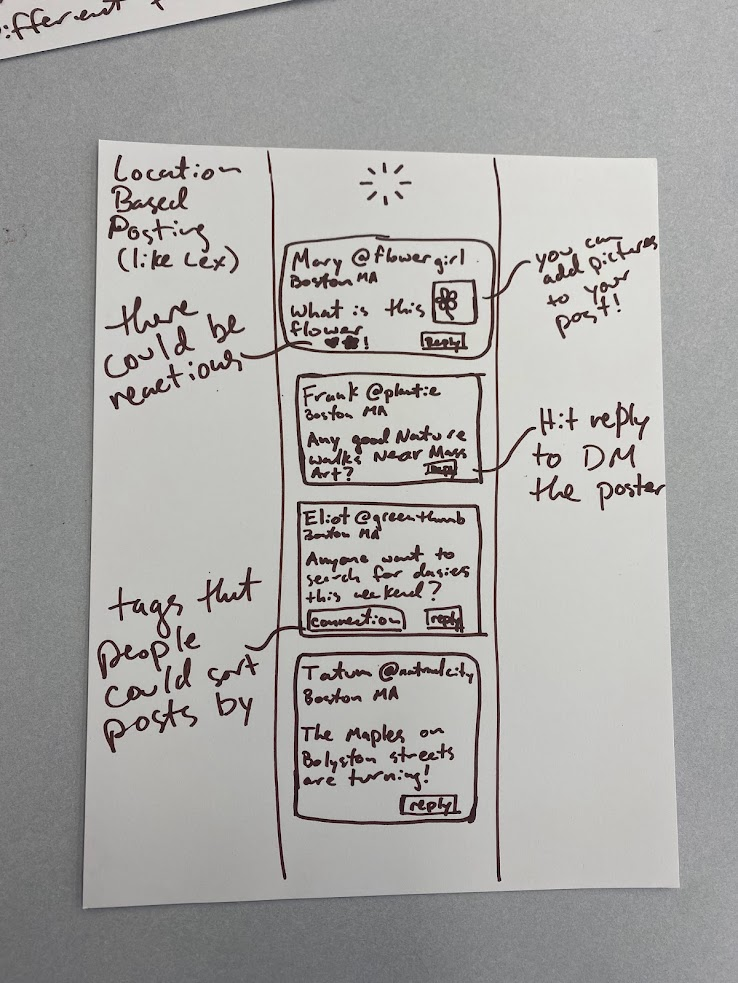 Different
Location
Based
Posting
(like Lex)
there
could be
reactions
tags that
people
could sort
posts by
Mary @flowergirl
Boston MA
What is this
flower
!
Reply
Frank @plantie
Boston MA
Any good Nature
walks Near Mass
Art?
Eliot @greenthumb
Boston MA
Anyone want to
search for dasies
this weekend?
connection reply
Tatum @natrualcity
Boston MA
The Maples on
Bolyston streets
are turning!
reply
you can
add pictures
to your
post!
Hit reply
to DM
the poster